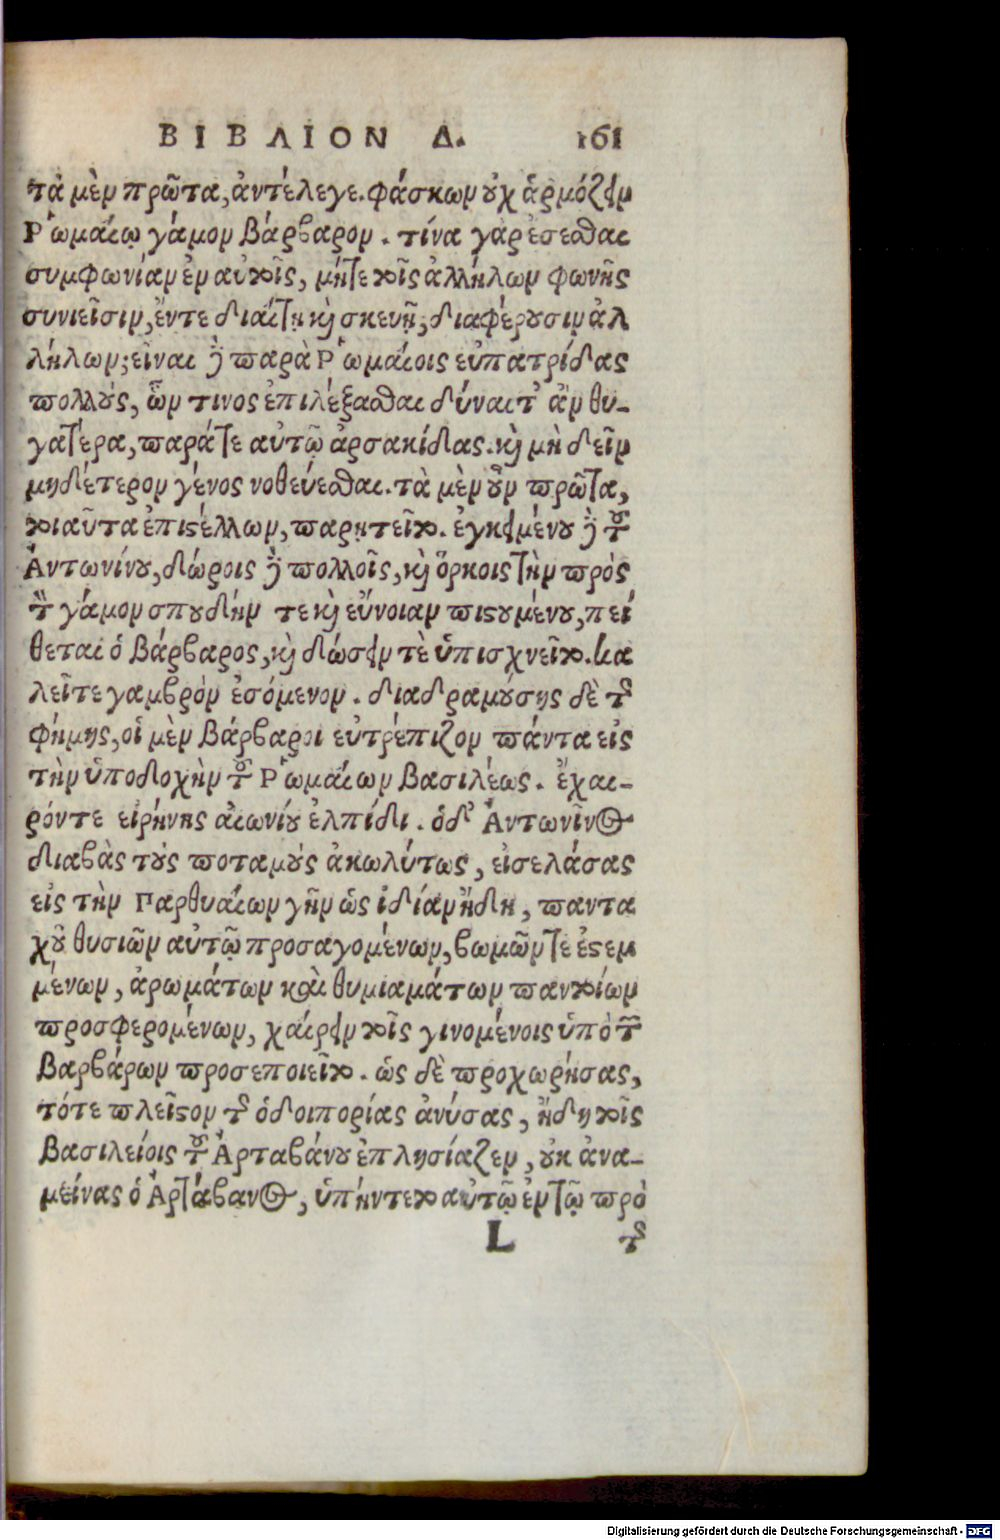 ΒΙΒΛΙΟΝ Δ. 161
τὰ μὲν πρῶτα, ἀντέλεγε. φάσκων οὐχ ἁρμόζειν
Ῥωμαίῳ γάμον βάρβαρον. τίνα γὰρ ἔσεσθαι
συμφωνίαν ἐν αὐτοῖς, μήτε τοῖς ἀλλήλων φωνῆς
συνιεῖσιν, ἔντε διαίτῃ καὶ σκευῇ, διαφέρουσιν ἀλ
λήλων; εἶναι δὲ παρὰ Ῥωμαίοις εὐπατρίδας
πολλούς, ὧν τινος ἐπιλέξασθαι δύναιτ' ἂν θυ-
γατέρα, παράτε αὐτῷ ἀρσακίδας. καὶ μὴ δεῖν
μηδέτερον γένος νοθεύεσθαι. τὰ μὲν οὖν πρῶτα,
τοιαῦτα ἐπιστέλλων, παρῃτεῖτο. ἐγκειμένου δὲ τοῦ
Ἀντωνίνου, δώροις δὲ πολλοῖς, καὶ ὅρκοις τὴν πρὸς
τὸν γάμον σπουδὴν τε καὶ εὔνοιαν πιστουμένου, πεί
θεται ὁ βάρβαρος, καὶ δώσειν τὲ ὑπισχνεῖτο. κα
λεῖτε γαμβρὸν ἐσόμενον. διαδραμούσης δὲ τῆς
φήμης, οἱ μὲν βάρβαροι εὐτρέπιζον πάντα εἰς
τὴν ὑποδοχὴν τοῦ Ῥωμαίων βασιλέως. ἔχαι-
ρόντε εἰρήνης αἰωνίου ἐλπίδι. ὁδ' Ἀντωνῖνος
διαβὰς τοὺς ποταμοὺς ἀκωλύτως, εἰσελάσας
εἰς τὴν Παρθυαίων γῆν ὡς ἰδίαν ἤδη, παντα
χοῦ θυσιῶν αὐτῷ προσαγομένων, βωμῶν τε ἐστεμ
μένων, ἀρωμάτων καὶ θυμιαμάτων παντοίων
προσφερομένων, χαίρειν τοῖς γινομένοις ὑπὸ τῶν
βαρβάρων προσεποιεῖτο. ὡς δὲ προχωρήσας,
τότε πλεῖστον τῆς ὁδοιπορίας ἀνύσας, ἤδη τοῖς
βασιλείοις τοῦ Ἀρταβάνου ἐπλησίαζεν, οὐκ ἀνα-
μείνας ὁ Ἀρτάβανος, ὑπήντετο αὐτῷ ἐν τῷ πρὸ
L τῆς
Digitalisierung gefördert durch die Deutsche Forschungsgemeinschaft - DFG